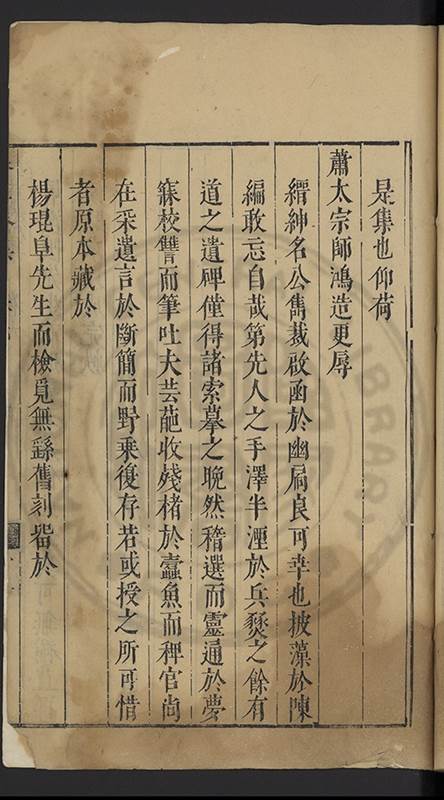 是集也仰荷
蕭太宗師鴻造更辱
縉紳名公雋裁啟函於幽扃良可幸也披藻於陳
編敢忘自哉第先人之手澤半湮於兵燹之餘有
道之遺碑僅得諸索摹之晚然稽選而靈通於夢
寐校讐而筆吐夫芸葩收殘楮於蠧魚而稗官尚
在采遺言於斷簡而野乗復存若或授之所可惜
者原本藏於
楊琨阜先生而檢覓無繇舊刻畱於